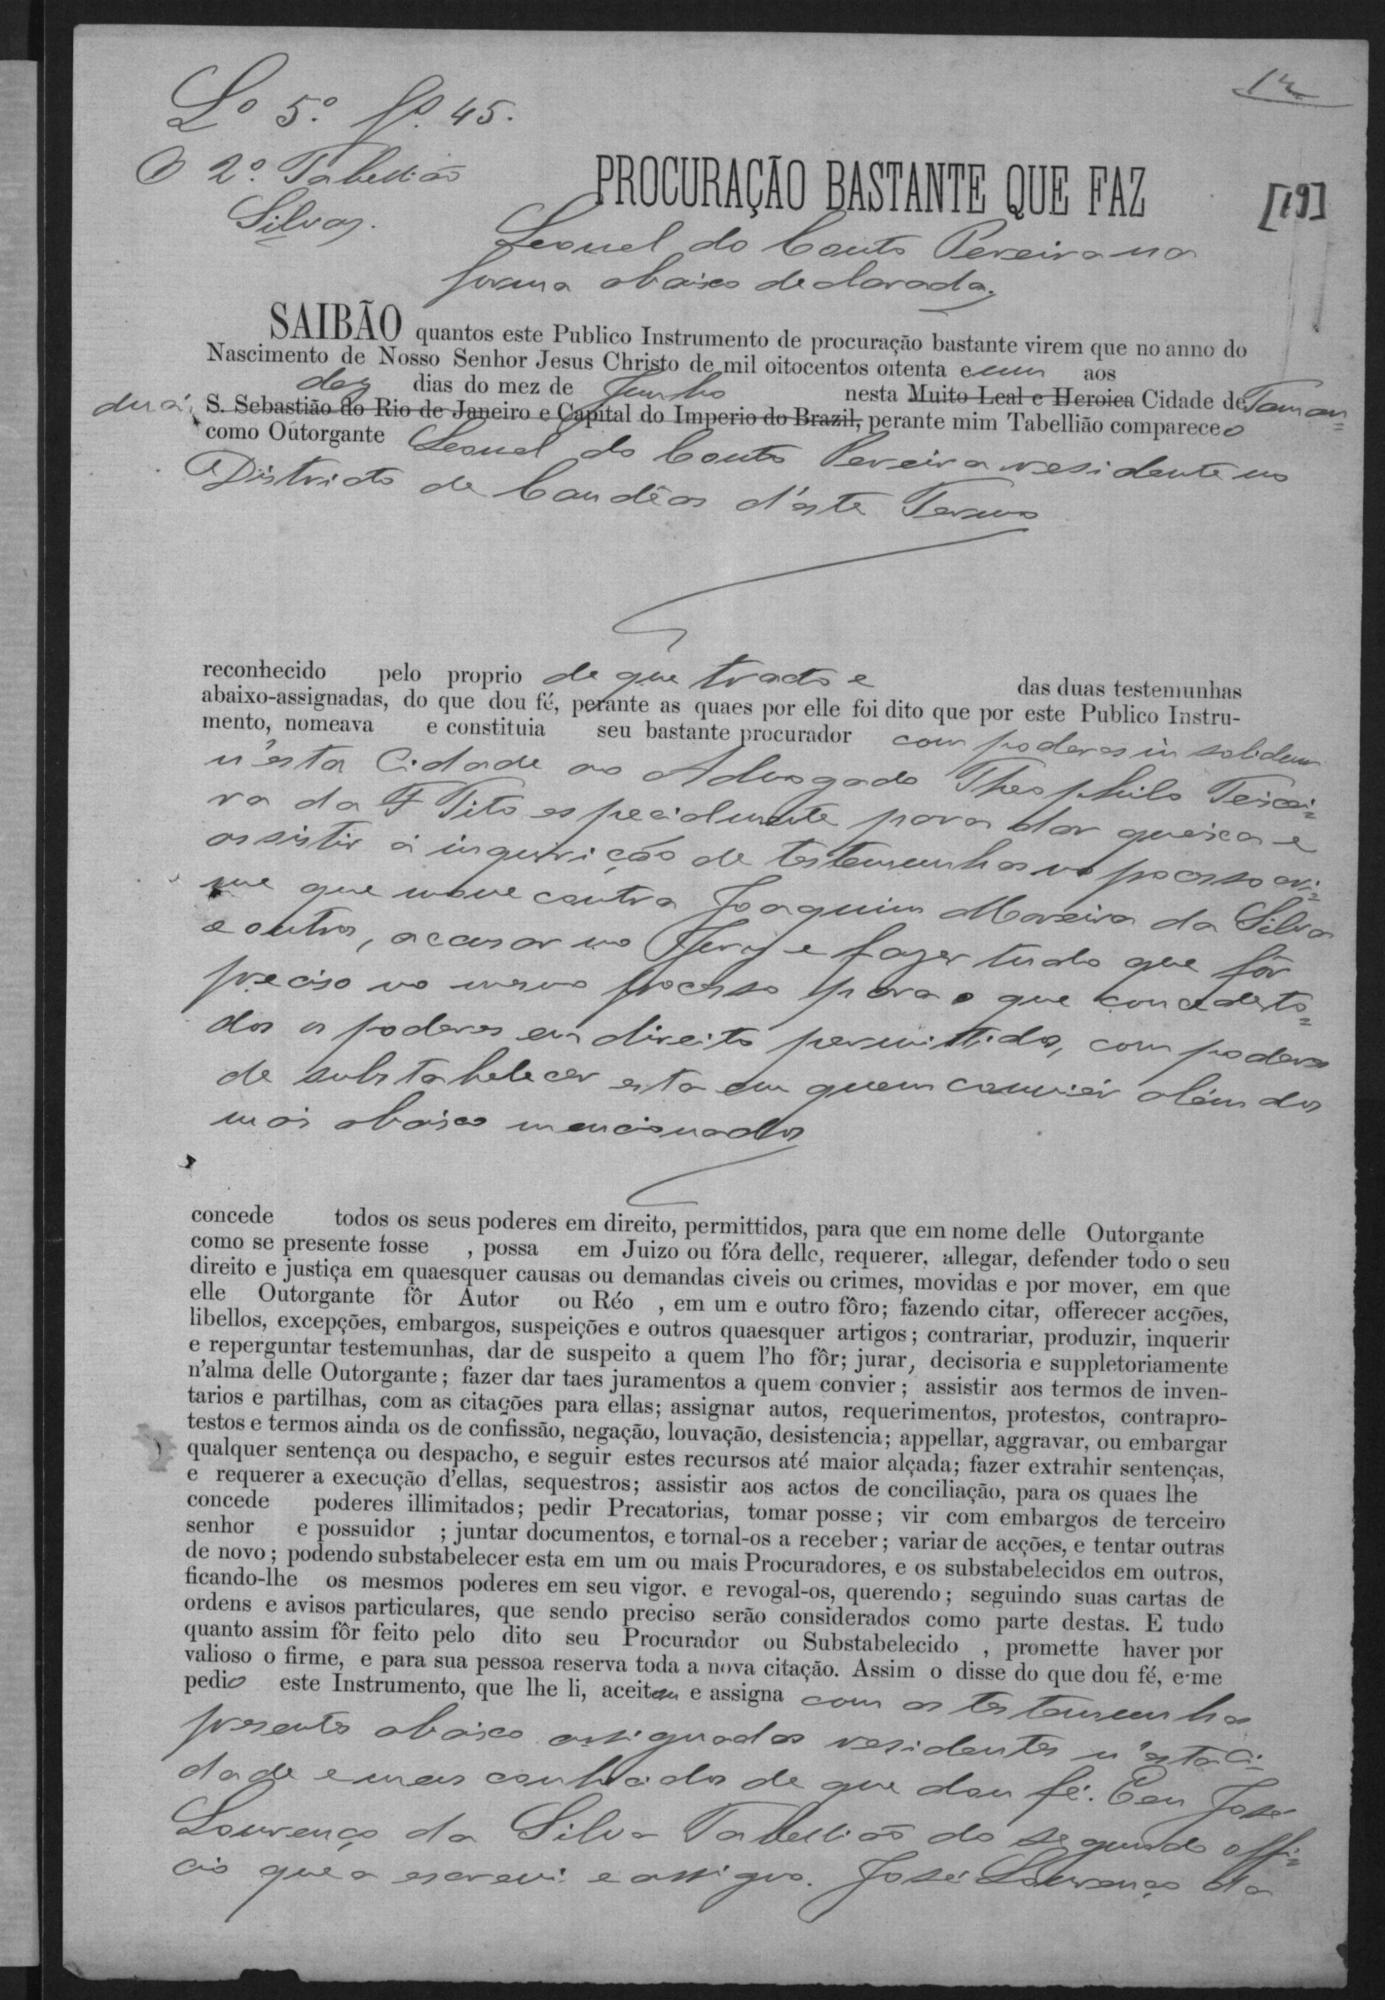 Lº 5º fs. 45.
O 2º Tabellião
Silva.
[19]
PROCURAÇÃO BASTANTE QUE FAZ
Leonel do Couto Pereira na
forma abaixo declarada.
SAIBÃO quantos este Publico Instrumento de procuração bastante virem que no anno do
Nascimento de Nosso Senhor Jesus Christo de mil oitocentos oitenta e um aos
dez dias do mez de Junho nesta Muito Leal e Heroica Cidade de Taman=
duá, S. Sebastião do Rio de Janeiro e Capital do Imperio do Brazil, perante mim Tabellião compareceo
como Outorgante Leonel do Couto Pereira residente no
Districto de Candêas d'este Termo
reconhecido pelo proprio de que trato e das duas testemunhas
abaixo-assignadas, do que dou fé, perante as quaes por elle foi dito que por este Publico Instru-
mento, nomeava e constituia seu bastante procurador com poderes in solidum
n'esta Cidade ao Advogado Theophilo Teixei=
ra da F Tito especialmente para dar queixa e
assistir á inquirição de testemunhas no processo cri=
me que move contra Joaquim Moreira da Silva
e outros, accusar no Jury e fazer tudo que fôr
preciso no mesmo processo para o que concede to=
dos os poderes em direito permittidos, com poderes
de substabelecer esta em quem convier além dos
mais abaixo mencionados
concede todos os seus poderes em direito, permittidos, para que em nome delle Outorgante
como se presente fosse , possa em Juizo ou fóra delle, requerer, allegar, defender todo o seu
direito e justiça em quaesquer causas ou demandas civeis ou crimes, movidas e por mover, em que
elle Outorgante fôr Autor ou Réo , em um e outro fôro; fazendo citar, offerecer acções,
libellos, excepções, embargos, suspeições e outros quaesquer artigos; contrariar, produzir, inquerir
e reperguntar testemunhas, dar de suspeito a quem l'ho fôr; jurar, decisoria e suppletoriamente
n'alma delle Outorgante; fazer dar taes juramentos a quem convier; assistir aos termos de inven-
tarios e partilhas, com as citações para ellas; assignar autos, requerimentos, protestos, contrapro-
testos e termos ainda os de confissão, negação, louvação, desistencia; appellar, aggravar, ou embargar
qualquer sentença ou despacho, e seguir estes recursos até maior alçada; fazer extrahir sentenças,
e requerer a execução d'ellas, sequestros; assistir aos actos de conciliação, para os quaes lhe
concede poderes illimitados; pedir Precatorias, tomar posse; vir com embargos de terceiro
senhor e possuidor ; juntar documentos, e tornal-os a receber; variar de acções, e tentar outras
de novo; podendo substabelecer esta em um ou mais Procuradores, e os substabelecidos em outros,
ficando-lhe os mesmos poderes em seu vigor, e revogal-os, querendo; seguindo suas cartas de
ordens e avisos particulares, que sendo preciso serão considerados como parte destas. E tudo
quanto assim fôr feito pelo dito seu Procurador ou Substabelecido , promette haver por
valioso o firme, e para sua pessoa reserva toda a nova citação. Assim o disse do que dou fé, e me
pedio este Instrumento, que lhe li, aceitou e assigna com as testemunhas
presentes abaixo assignadas residentes n'esta Ci-
dade e meus conhecidos de que dou fé. Eu José
Lourenço da Silva Tabellião do segundo offi=
cio que a escrevi e assigno. José Lourenço da